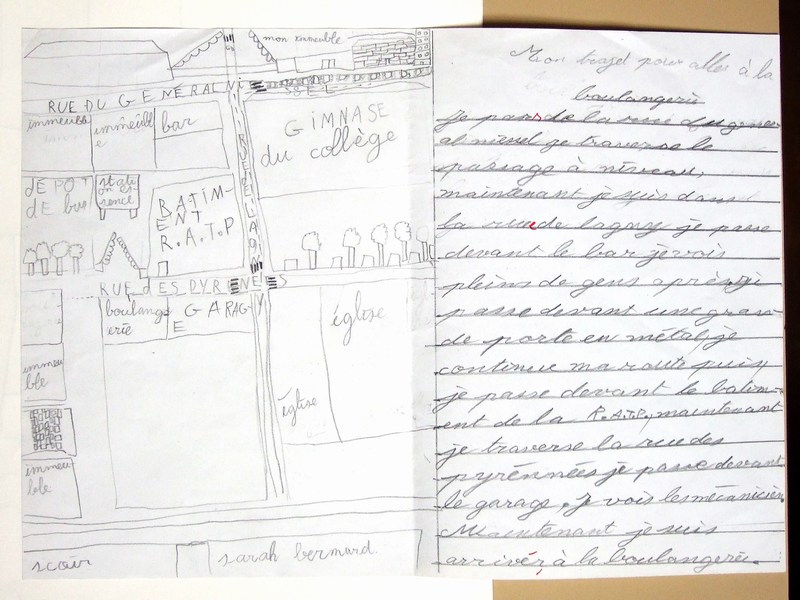 mon immeuble
RUE DU GENERAL NI
SSEL
immeuble
immeubl
e
bar
GIMNASE
du collège
RUE DE LAGNY
DÉPOT
de bus
stati
on es
rence
BATIM-
ENT
R.A.T.P
RUE dES PYRENEES
boulang
erie
GARAG-
E
église
église
immeu
ble
immeu-
ble
scair
sarah bernard.
Mon trajet pour aller à la
boulangerie
je passe de la rue du géner
al niesel je traverse le
passage à niveau,
maintenant je suis dans
la rue de lagny je passe
devant le bar je vois
pleins de gens après je
passe devant une gran
de porte en métal, je
continue ma route puis,
je passe devant le batim-
ent de la R.A.T.P., maintenant
je traverse la rue des
pyrénnées je passe devant
le garage, je vois les mécanicien.
Maintenant je suis
arrivér, à la boulangerie.